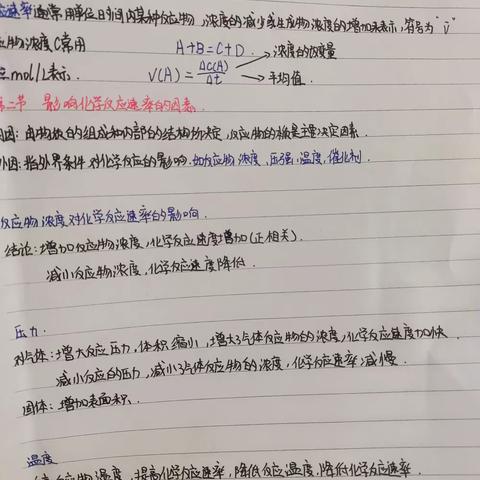 应速率通常用单位时间内某种反应物浓度的减少或生成物浓度的增加来表示,符号为"v"
应物浓度C常用 A+B=C+D. → 浓度的改变量
mol/L表示. V(A)=ΔC(A)/Δt → 平均值
第二节 影响化学反应速率的因素.
内因:由物质的组成和内部的结构所决定,反应物的 决定因素.
外因:指外界条件对化学反应的影响.如反应物浓度,压强,温度,催化剂.
反应物浓度对化学反应速率的影响.
结论:增加反应物浓度,化学反应速度增加(正相关).
减小反应物浓度,化学反应速度降低.
压力.
对气体:增大反应压力,体积缩小,增大气体反应物的浓度,化学反应速度加快.
减小反应的压力,减小气体反应物的浓度,化学反应速率减慢.
固体:增加表面积.
温度
反应物温度,提高化学反应速率,降低反应温度,降低化学反应速率.